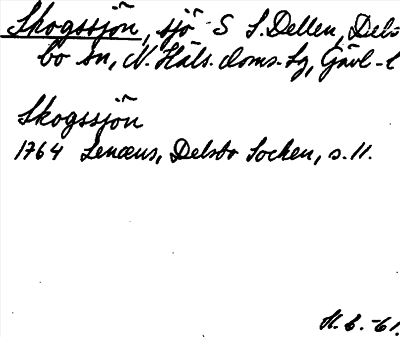 Skogssjön, sjö S S. Dellen, Dels
bo sn, N. Häls. doms. Lg, Gävl-l
Skogssjön
1764 Lenæus, Delsbo Socken, s. 11.
H. b. -61.